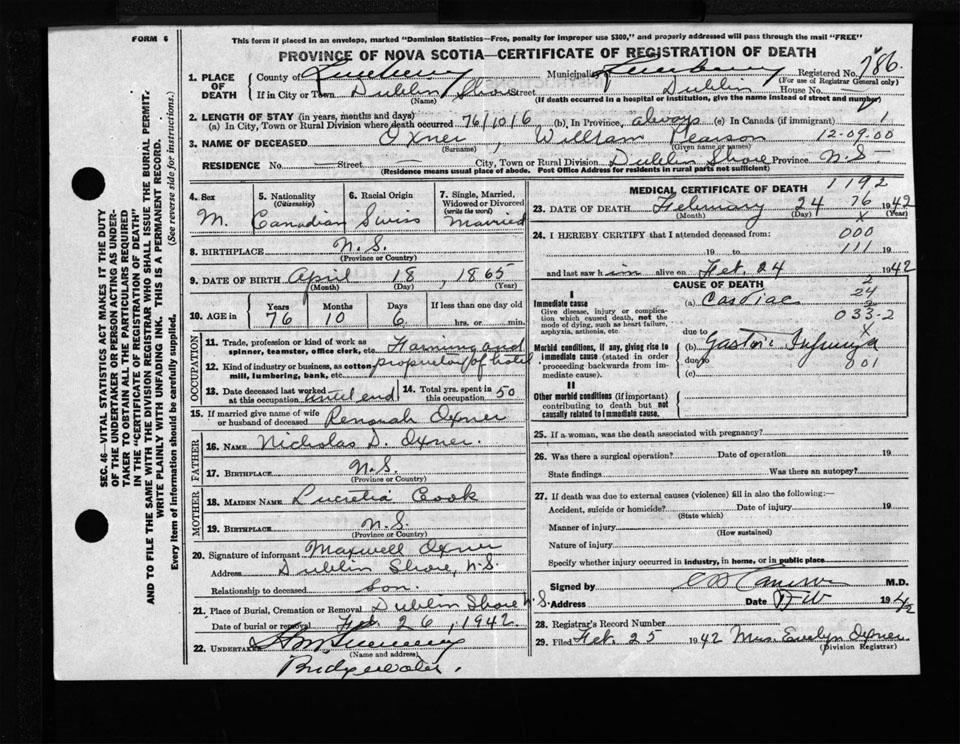 FORM 6
This form if placed in an envelope, marked "Dominion Statistics—Free, penalty for improper use $300," and properly addressed will pass through the mail "FREE"
PROVINCE OF NOVA SCOTIA—CERTIFICATE OF REGISTRATION OF DEATH
SEC. 46—VITAL STATISTICS ACT MAKES IT THE DUTY
OF THE UNDERTAKER OR PERSON ACTING AS UNDER-
TAKER TO OBTAIN ALL THE PARTICULARS REQUIRED
IN THE "CERTIFICATE OF REGISTRATION OF DEATH"
AND TO FILE THE SAME WITH THE DIVISION REGISTRAR WHO SHALL ISSUE THE BURIAL PERMIT.
WRITE PLAINLY WITH UNFADING INK. THIS IS A PERMANENT RECORD.
Every item of information should be carefully supplied. (See reverse side for instructions.)
1. PLACE OF DEATH
County of Lunenburg Municipality Lunenburg Registered No. 786.
(For use of Registrar General only)
If in City or Town Dublin Shore Street Dublin House No.
(Name) (If death occurred in a hospital or institution, give the name instead of street and number)
2. LENGTH OF STAY (in years, months and days)
(a) In City, Town or Rural Division where death occurred 76/10/6 (b) In Province, always (c) In Canada (if immigrant) 1
3. NAME OF DECEASED Oxner, William Pearson 12-09.00
(Surname) (Given name or names)
RESIDENCE No. — Street — City, Town or Rural Division Dublin Shore Province N.S.
(Residence means usual place of abode. Post Office Address for residents in rural parts not sufficient)
4. Sex M.
5. Nationality (Citizenship) Canadian
6. Racial Origin Swiss
7. Single, Married, Widowed or Divorced (write the word) Married
8. BIRTHPLACE N.S.
(Province or Country)
9. DATE OF BIRTH April 18, 1865
(Month) (Day) (Year)
10. AGE in Years 76 Months 10 Days 6 If less than one day old hrs. or min.
OCCUPATION
11. Trade, profession or kind of work as spinner, teamster, office clerk, etc. Farming and
12. Kind of industry or business, as cotton mill, lumbering, bank, etc. proprietor of hotel
13. Date deceased last worked at this occupation until end
14. Total yrs. spent in this occupation 50
15. If married give name of wife or husband of deceased Renorah Oxner
FATHER
16. NAME Nicholas D. Oxner.
17. BIRTHPLACE N.S.
(Province or Country)
MOTHER
18. MAIDEN NAME Lucretia Cook
19. BIRTHPLACE N.S.
(Province or Country)
20. Signature of informant Maxwell Oxner
Address Dublin Shore, N.S.
Relationship to deceased Son
21. Place of Burial, Cremation or Removal Dublin Shore N.S.
Date of burial or removal Feb 26, 1942.
22. UNDERTAKER
(Name and address)
Bridgewater.
MEDICAL CERTIFICATE OF DEATH
1192
23. DATE OF DEATH February 24 76 1942
(Month) (Day) (Year)
24. I HEREBY CERTIFY that I attended deceased from: 000
19 to 111 19
and last saw him alive on Feb. 24 1942
CAUSE OF DEATH
2
24
2
I
Immediate cause
Give disease, injury or complication which caused death, not the mode of dying, such as heart failure, asphyxia, asthenia, etc.
(a) Cardiac
033-2
due to X
Morbid conditions, if any, giving rise to immediate cause (stated in order proceeding backwards from immediate cause).
(b)
due to 801
(c)
II
Other morbid conditions (if important) contributing to death but not causally related to immediate cause.
25. If a woman, was the death associated with pregnancy?
26. Was there a surgical operation? Date of operation 19
State findings Was there an autopsy?
27. If death was due to external causes (violence) fill in also the following:—
Accident, suicide or homicide? Date of injury 19
(State which)
Manner of injury
(How sustained)
Nature of injury
Specify whether injury occurred in industry, in home, or in public place
Signed by M.D.
Address Date 1942
28. Registrar's Record Number
29. Filed Feb. 25 1942 Mrs. Evelyn Oxner
(Division Registrar)